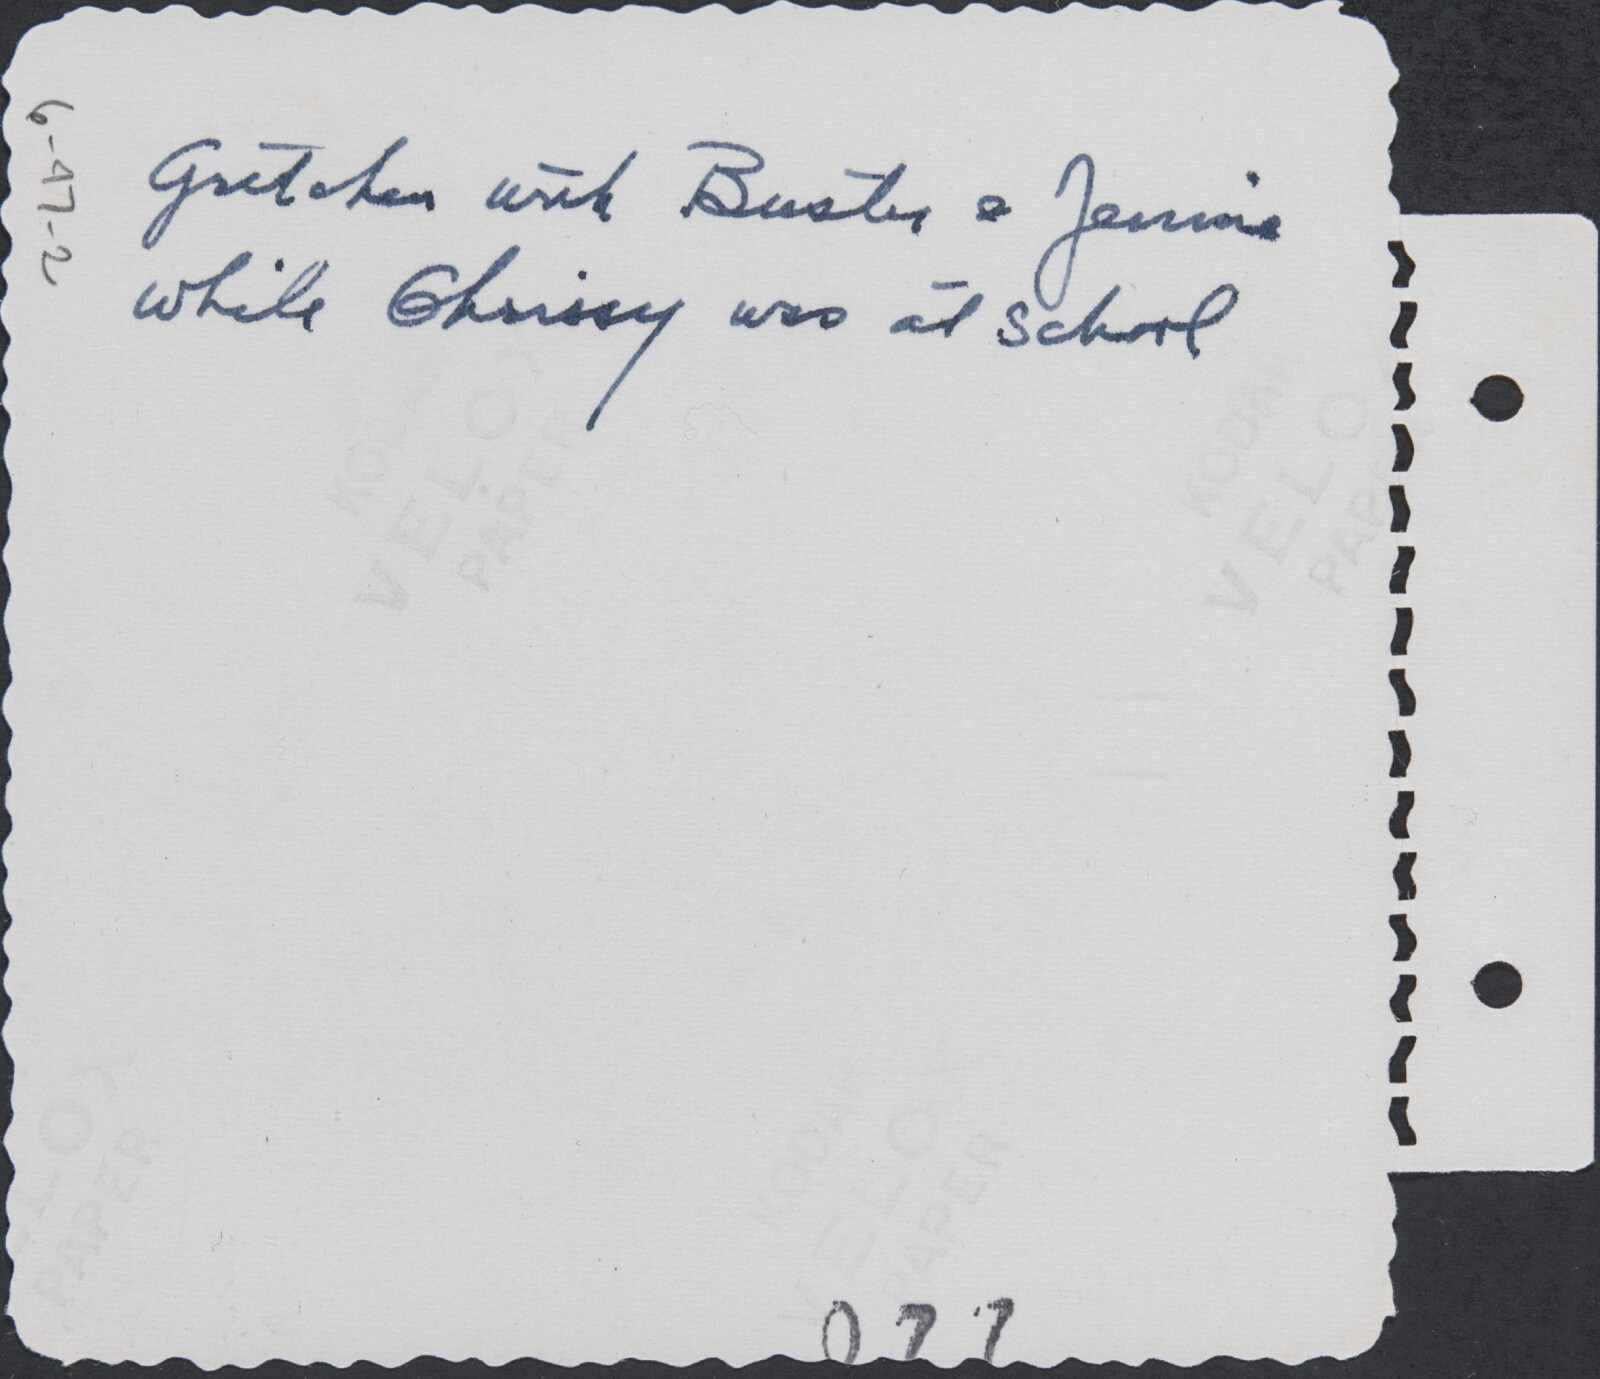 6-47-2
Gretchen with Buster & Jennie
while Chrissy was at school
KODAK
VELOX
PAPER
KODAK
VELO
PAPER
LOX
PAPER
KODAK
VELO
PAPER
077